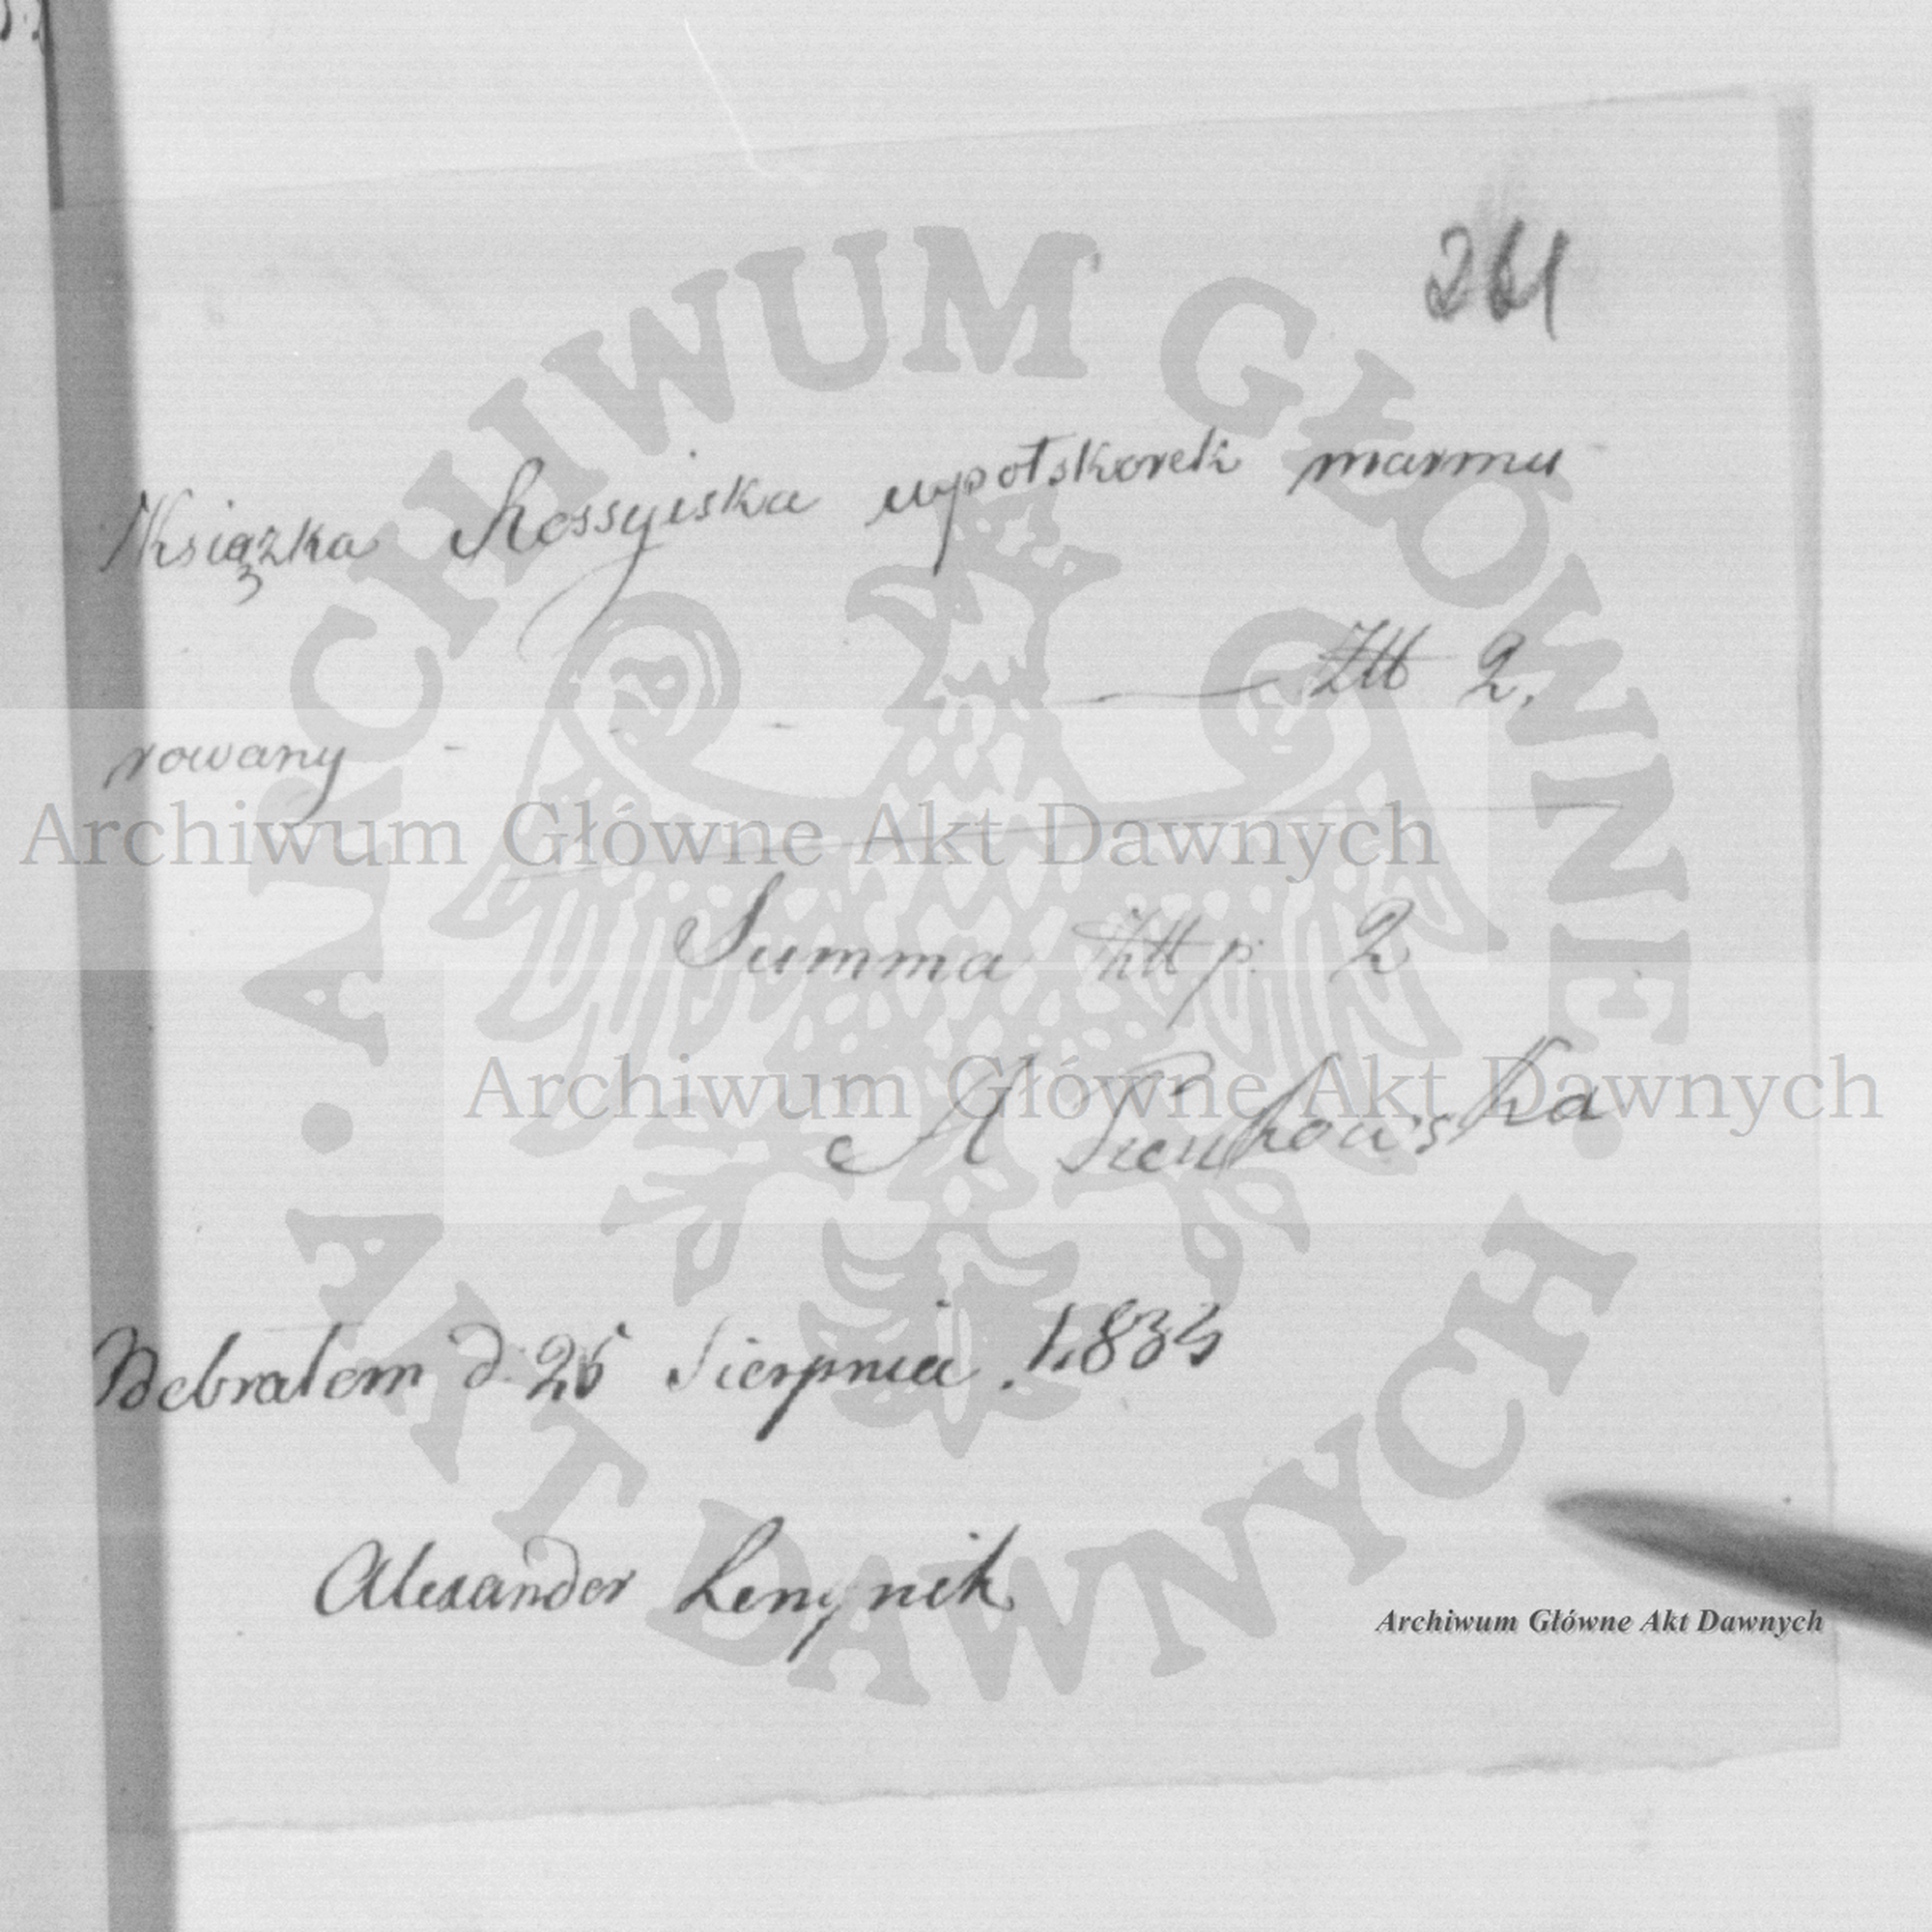 261
Książka Rossyiska wpołskorek marmu
Złł 2,
rowany - - -
Summa Złł p: 2
A
Odebrałem d: 25 Sierpnia. 1.833
Alexander
ARCHIWUM GŁÓWNE AKT DAWNYCH
Archiwum Główne Akt Dawnych
Archiwum Główne Akt Dawnych
Archiwum Główne Akt Dawnych